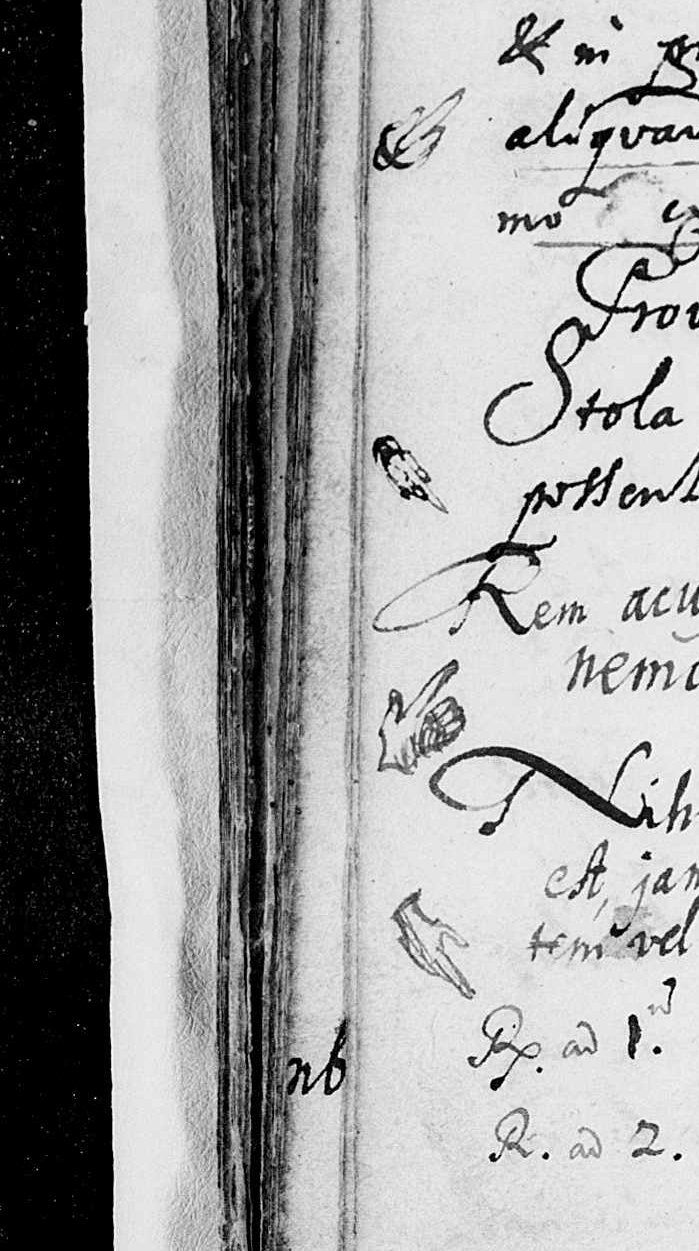 & in
aliquan
mo
Prov
Stola
possent
Rem acu
nemo
Nih
est, jam
tem vel
nb
Rx. ad 1.m
R. ad 2.